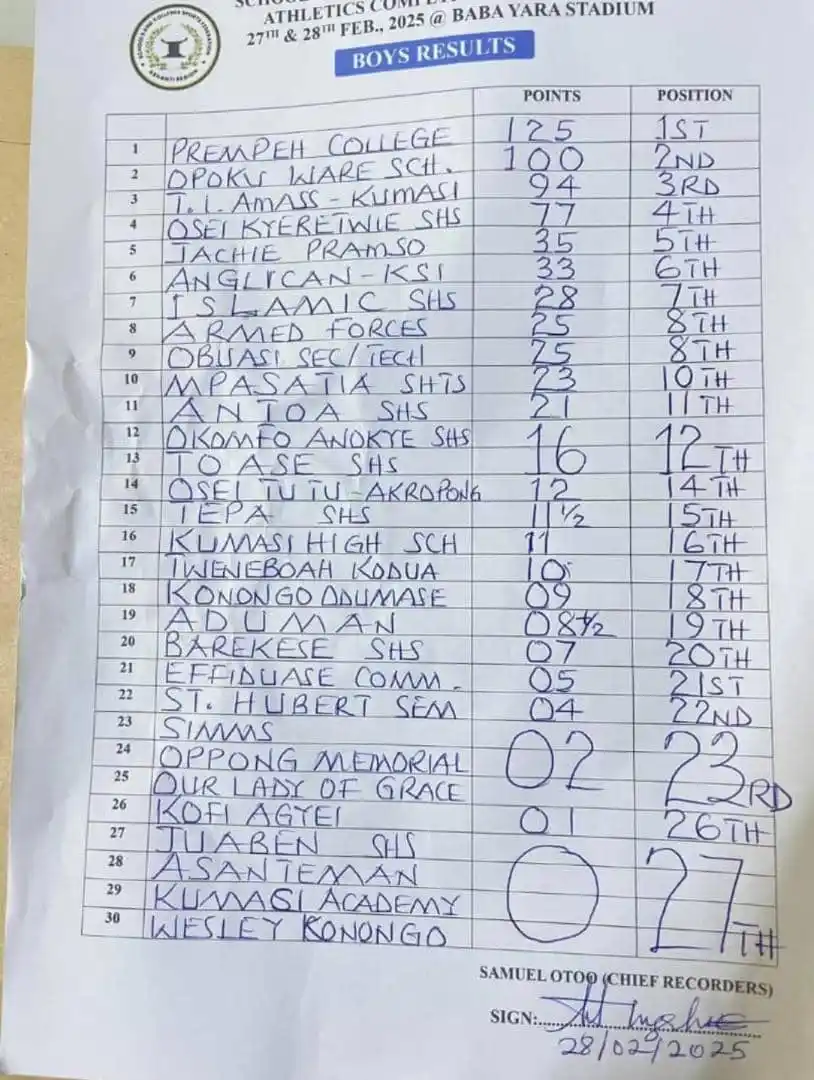 ATHLETICS
27TH & 28TH FEB., 2025 @ BABA YARA STADIUM
BOYS RESULTS
POINTS POSITION
1 PREMPEH COLLEGE 125 1ST
2 OPOKU WARE SCH. 100 2ND
3 T. I. AMASS - KUMASI 94 3RD
4 OSEI KYERETWIE SHS 77 4TH
5 JACHIE PRAMSO 35 5TH
6 ANGLICAN - KSI 33 6TH
7 ISLAMIC SHS 28 7TH
8 ARMED FORCES 25 8TH
9 OBUASI SEC/TECH 25 8TH
10 MPASATIA SHTS 23 10TH
11 ANTOA SHS 21 11TH
12 OKOMFO ANOKYE SHS 16 12TH
13 TOASE SHS
14 OSEI TUTU - AKROPONG 12 14TH
15 TEPA SHS 11 1/2 15TH
16 KUMASI HIGH SCH 11 16TH
17 TWENEBOAH KODUA 10 17TH
18 KONONGO ODUMASE 09 18TH
19 ADUMAN 08 1/2 19TH
20 BAREKESE SHS 07 20TH
21 EFFIDUASE COMM. 05 21ST
22 ST. HUBERT SEM 04 22ND
23 SIMMS
24 OPPONG MEMORIAL 02 23RD
25 OUR LADY OF GRACE
26 KOFI AGYEI 01 26TH
27 JUABEN SHS
28 ASANTEMAN 0 27TH
29 KUMASI ACADEMY
30 WESLEY KONONGO
SAMUEL OTOO (CHIEF RECORDERS)
SIGN:
28/02/2025